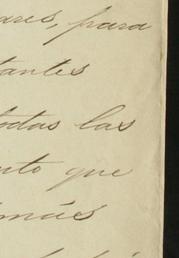 ares, para
tantes
todas las
nto que
más